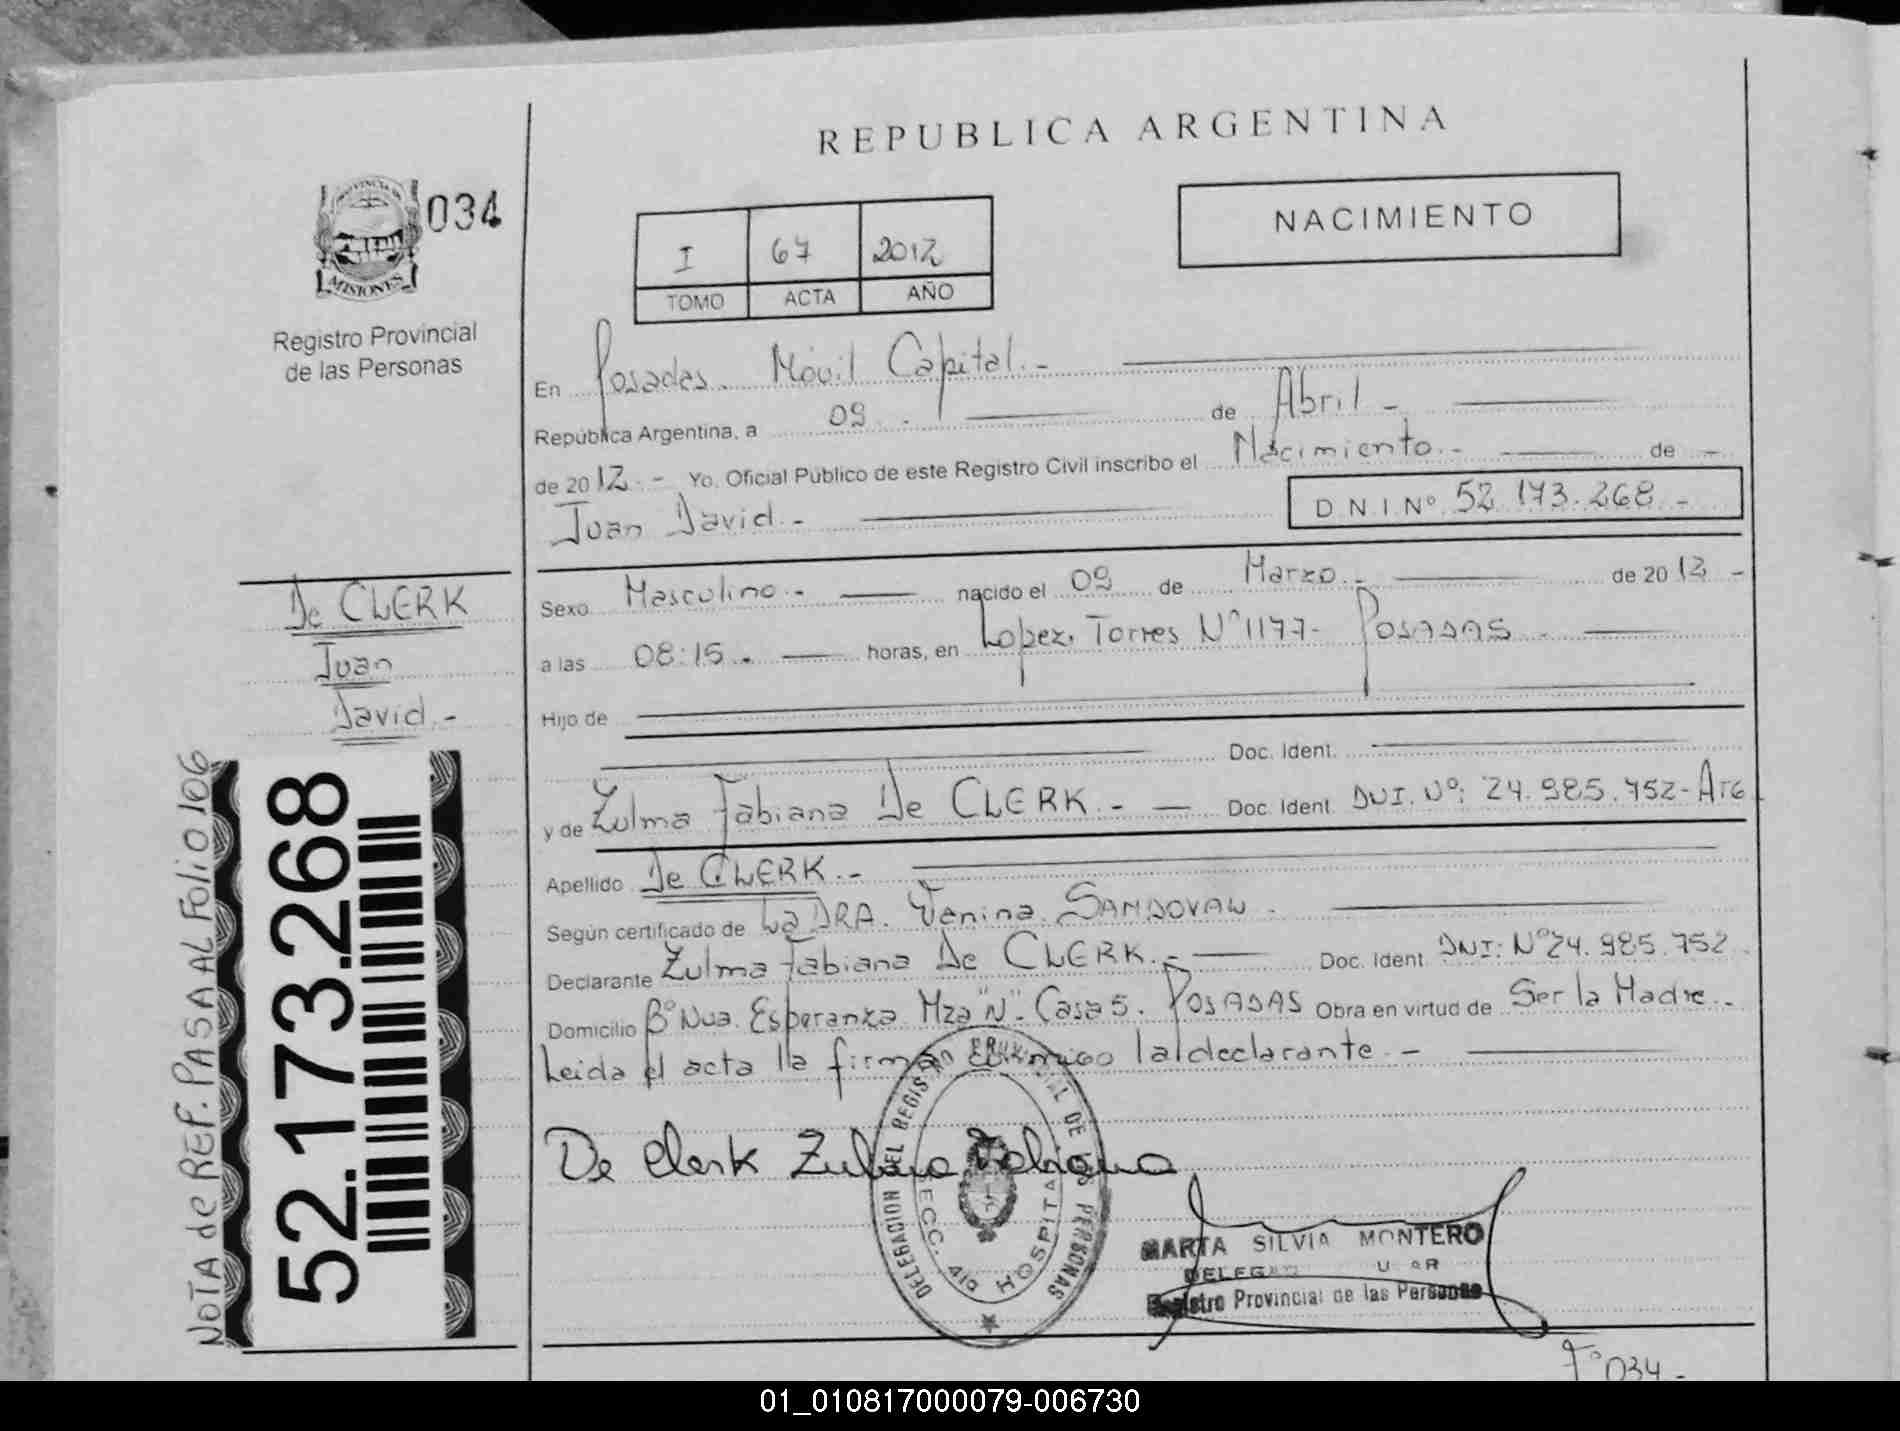 REPUBLICA ARGENTINA
PROVINCIA DE
MISIONES
034
Registro Provincial
de las Personas
I 67 2012
TOMO ACTA AÑO
NACIMIENTO
En Posadas Móvil Capital.-
República Argentina, a 09 . de Abril -
de 2012.- Yo, Oficial Público de este Registro Civil inscribo el Nacimiento.- de -
Juan David.-
D N I Nº 52.173.268.-
De CLERK
Juan
David.-
Sexo Masculino.- nacido el 09 de Marzo.- de 2012 -
a las 08:15.- horas, en Lopez Torres Nº1177- POSADAS.-
Hijo de
Doc. Ident.
y de Zulma Fabiana De CLERK.- Doc. Ident. DNI. Nº: 24.985.752-Arg
Apellido De CLERK.-
Según certificado de La DRA. Yanina SANDOVAL.
Declarante Zulma Fabiana De CLERK.- Doc. Ident. DNI: Nº24.985.752
Domicilio Bº Nva. Esperanza Mza "N". Casa 5. POSADAS Obra en virtud de Ser la Madre.-
Leida el acta la firman conmigo la declarante.-
De Clerk Zulma Fabiana
DELEGACION DEL REGISTRO PROVINCIAL DE LAS PERSONAS
SECC. HOSPITAL
MARTA SILVIA MONTERO
Registro Provincial de las Personas
Fº034.-
NOTA de REF. PASA AL FOLIO 106
52.173.268
01_010817000079-006730